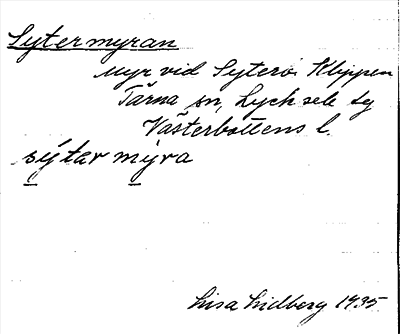 Sytermyran
Myr vid Syterö. Klippen
Tärna sn, Lycksele sg
Västerbottens l.
sýtar mýra
Lisa Lidberg 1935